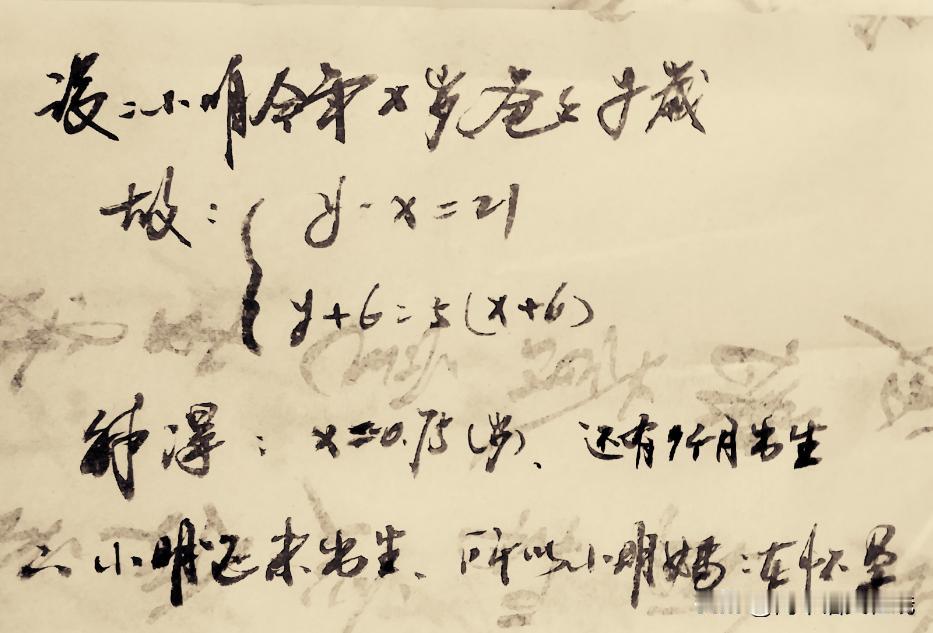 设:小明今年x岁爸爸y歲
故:{ y-x=21
y+6=5(x+6)
解得:x=-0.75(岁)、还有9个月出生
∴小明还未出生、所以小明妈妈在怀孕